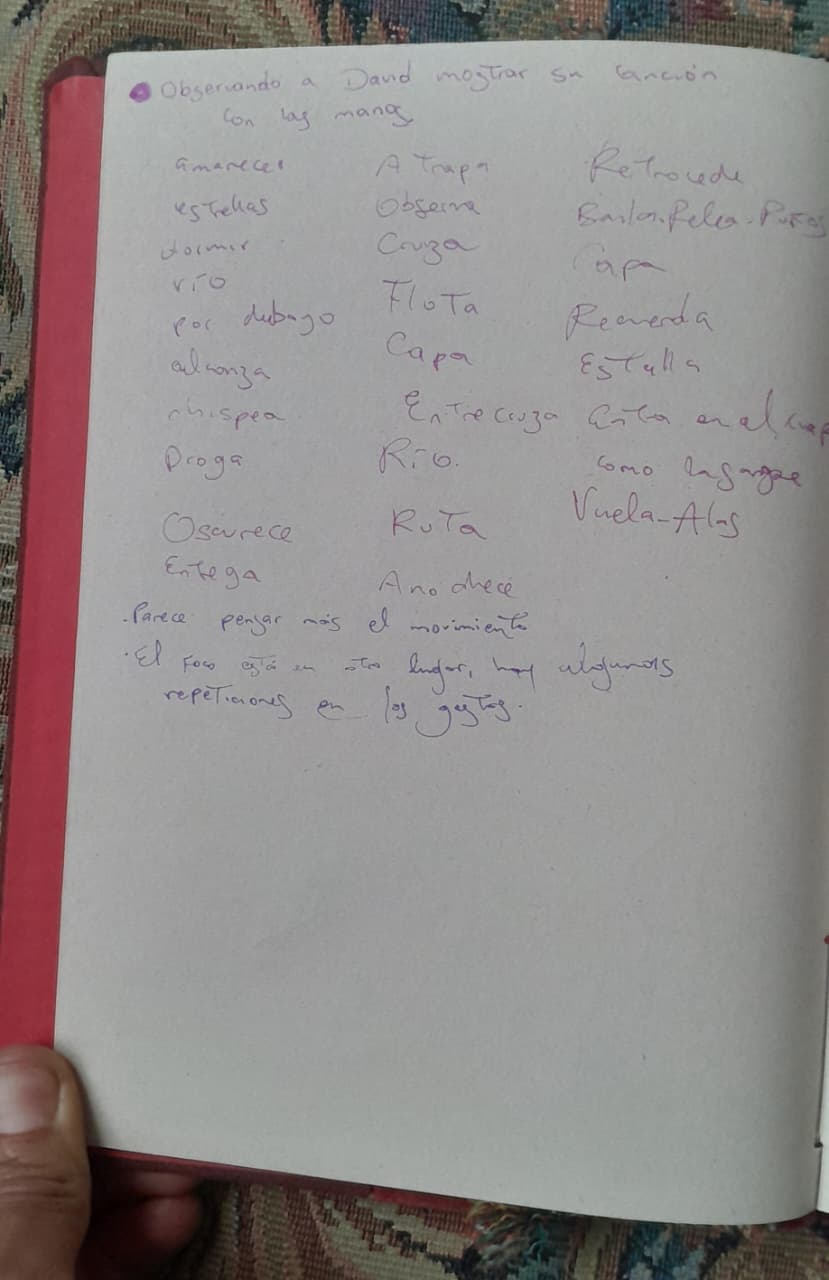 Observando a David mostrar su canción
con las manos
amanecer
estrellas
dormir
río
por debajo
alcanza
chispea
Droga
Oscurece
Entega
Atrapa
Observa
Cruza
Flota
Capa
Entrecruza
Río.
Ruta
Anochece
Retrocede
Bailar-Pelea-Puños
Capa
Recuerda
Estalla
Entra en el
como la sangre
Vuela-Alas
.Parece pensar más el movimiento
.El foco está en otro lugar, hay algunas
repeticiones en los gestos.